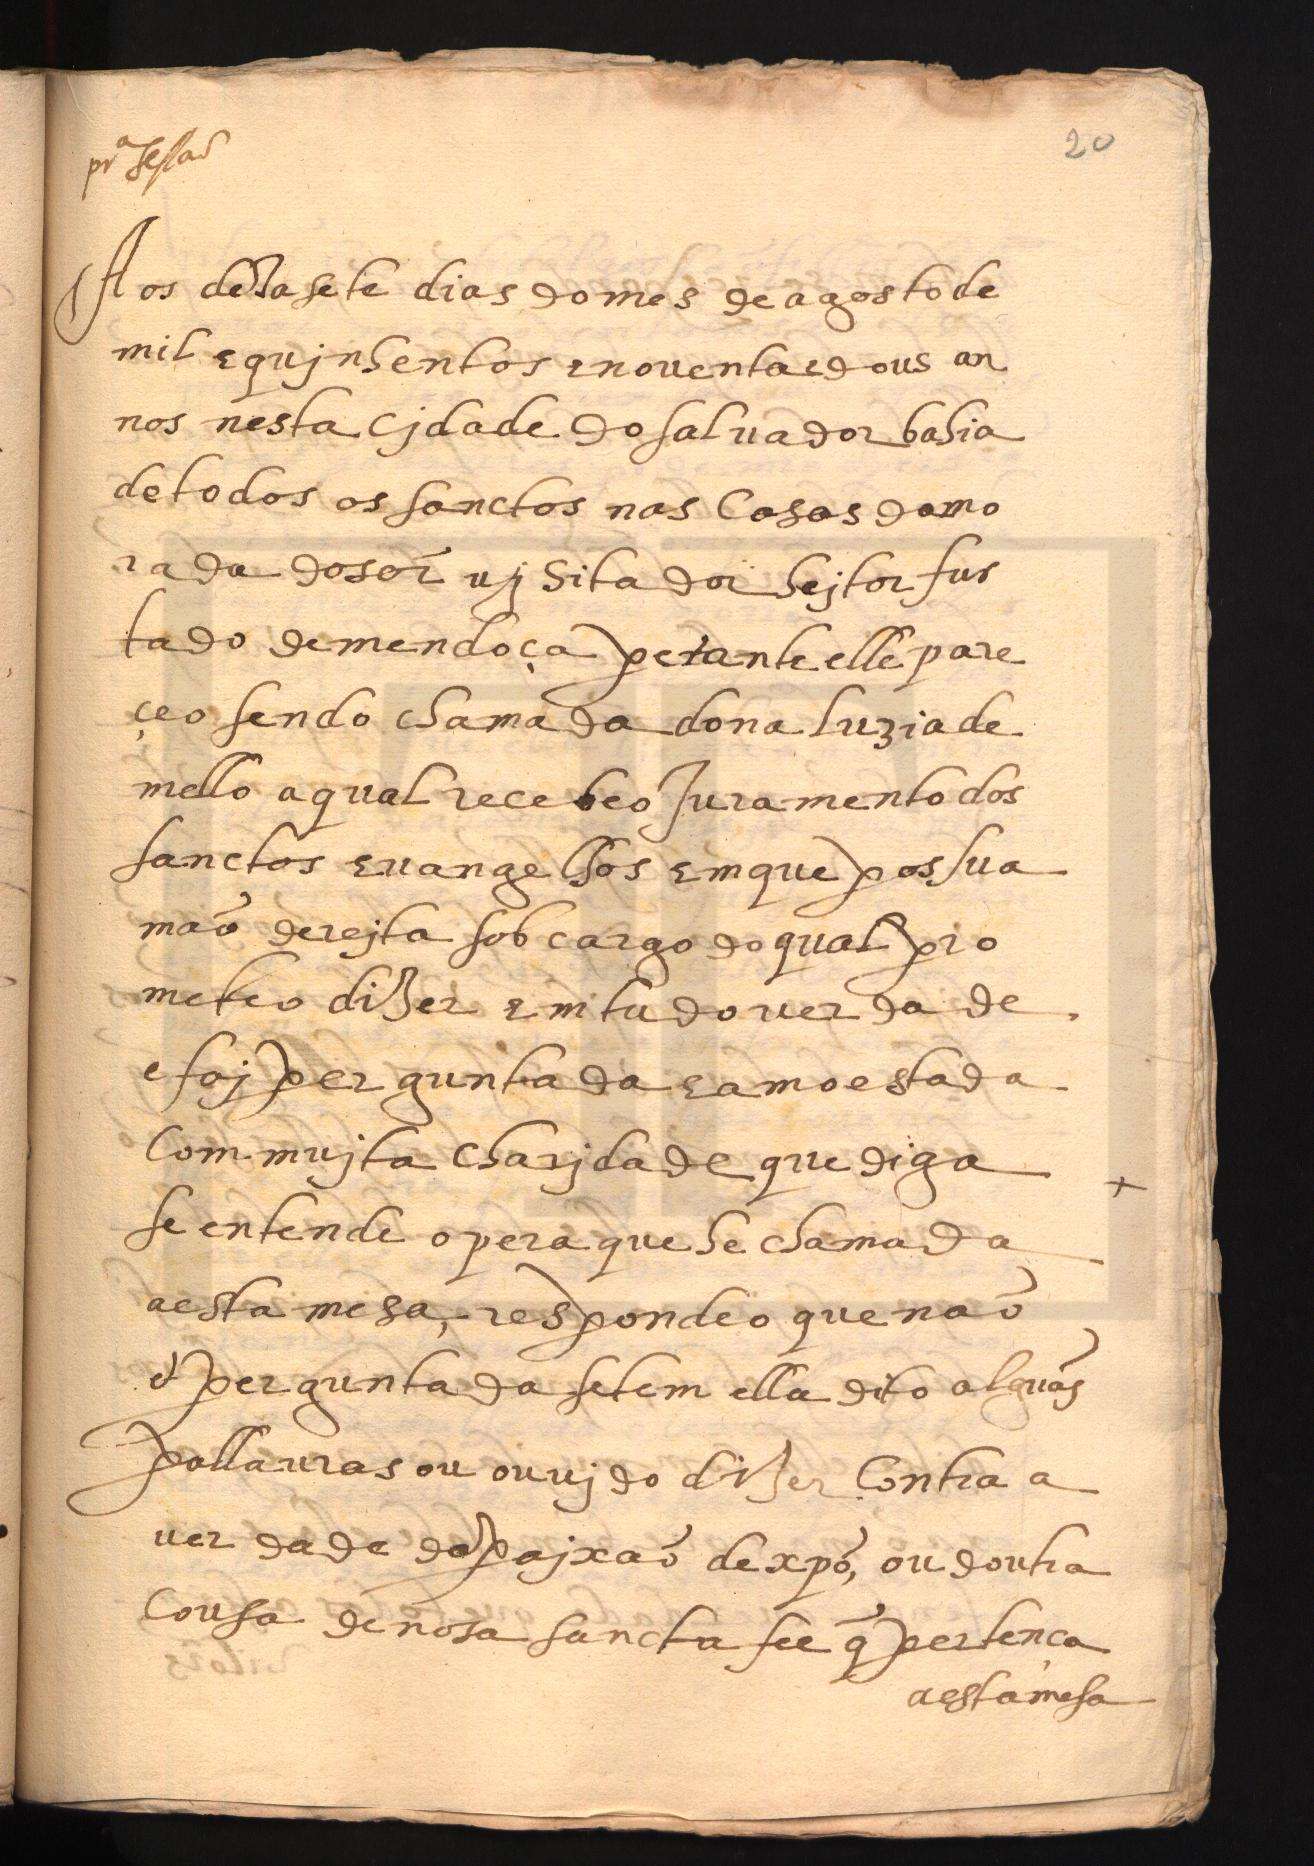 prª sessaõ
20
Aos dezasete dias do mes de agosto de
mil e qujnhentos e noventa e dous an
nos nesta Cjdade do saluador bahia
de todos os sanctos nas Casas da mo
rada do sõr ujsitador hejtor fur
tado de mendoça perante elle pare
çeo sendo chamada dona luzia de
mello a qual recebeo Juramento dos
sanctos euangelhos em que pos sua
maõ derejta sob cargo do qual pro
meteo dizer em tudo verdade.
e foj perguntada e amoestada
Com mujta charjdade que diga
se entende o pera que he chamada
a esta mesa, respondeo que naõ
e perguntada se tem ella dito alguãs
pallauras ou ouujdo dizer Contra a
verdade da pajxaõ de xpõ, ou doutra
Cousa de nosa sancta fee q̃ pertença
a esta mesa